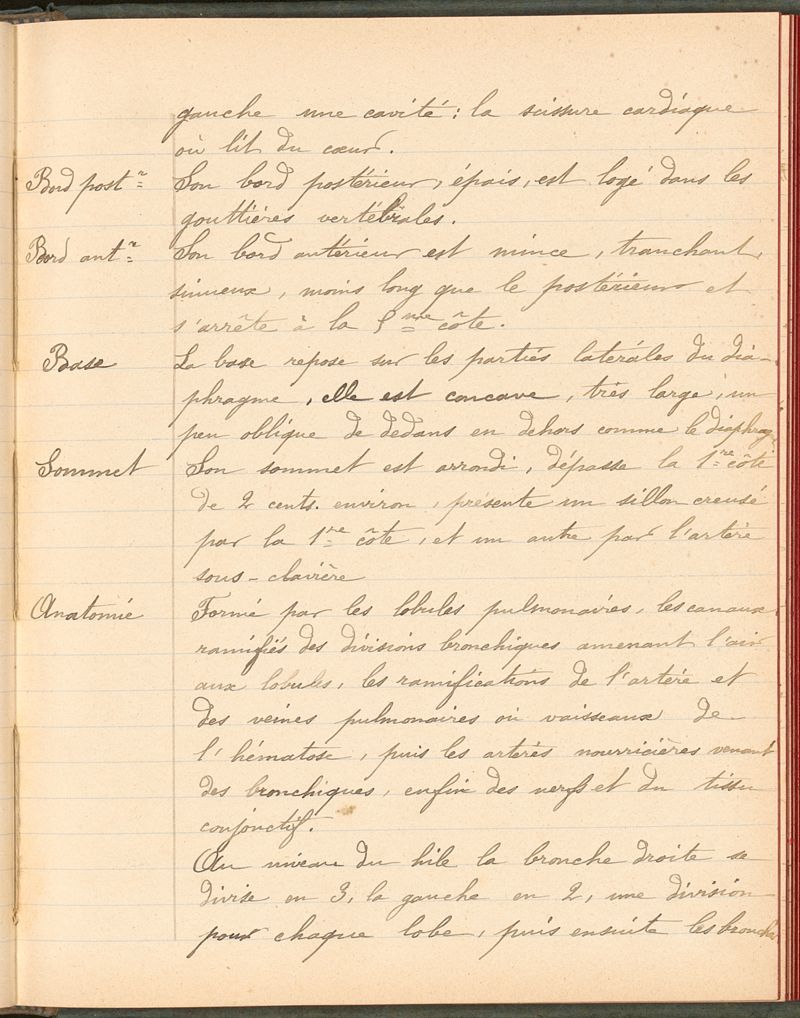 gauche une cavité : la scissure cardiaque
où lit du cœur.
Bord postr Son bord postérieur, épais, est logé dans les
gouttières vertébrales.
Bord antr Son bord antérieur est mince, tranchant,
sinueux, moins long que le postérieur et
s'arrête à la 5me côte.
Base La base repose sur les parties latérales du dia-
phragme, elle est concave, très large, un
peu oblique de dedans en dehors comme le diaphrag
Sommet Son sommet est arrondi, dépasse la 1re côte
de 2 cents. environ, présente un sillon creusé
par la 1re côte, et un autre par l'artère
sous-clavière
Anatomie Formé par les lobules pulmonaires, les canaux
ramifiés des divisions bronchiques amenant l'air
aux lobules, les ramifications de l'artère et
des veines pulmonaires ou vaisseaux de
l'hématose, puis les artères nourricières venant
des bronchiques, enfin des nerfs et du tissu
conjonctif.
Au niveau du hile la bronche droite se
divise en 3, la gauche en 2, une division
pour chaque lobe, puis ensuite les bronches